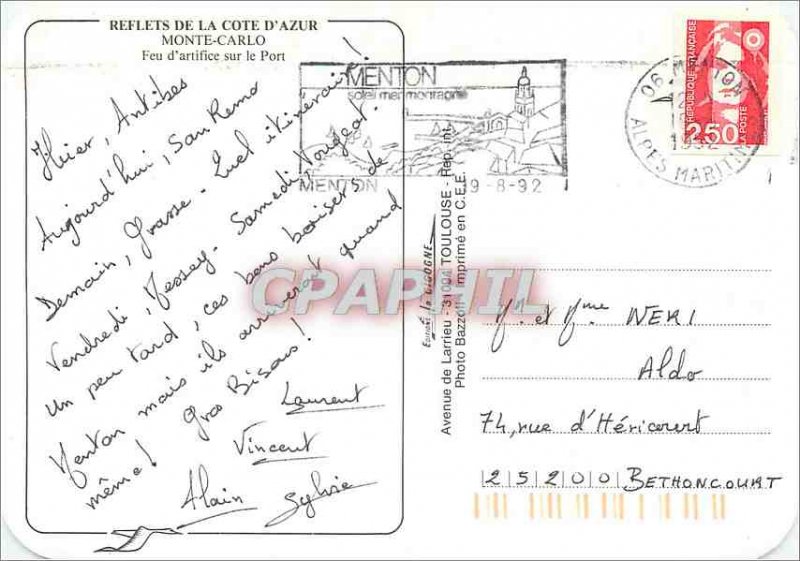 REFLETS DE LA COTE D'AZUR
MONTE-CARLO
Feu d'artifice sur le Port
Hier, Antibes
Aujourd'hui, San Remo
Demain, Grasse - Quel itinéraire!
Vendredi, Massey - Samedi, Nougeot.
Un peu tard, ces bons baisers de
Menton mais ils arriveront quand
même! Gros Bisous!
Laurent
Vincent
Alain Sylvie
MENTON
soleil mer montagne
MENTON 19-8-92
06 MENTON
ALPES MARITIMES
REPUBLIQUE FRANÇAISE
2,50
LA POSTE
Editions la CIGOGNE
Avenue de Larrieu - 31094 TOULOUSE - Rep. int.
Photo Bazzoli - Imprimé en C.E.E.
CPAPHIL
Mr et Mme NERI
Aldo
74, rue d'Héricourt
25200 BETHONCOURT